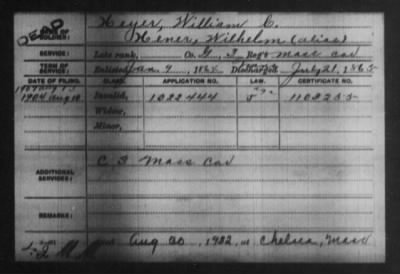 DEAD
Heyer, William C.
NAME OF SOLDIER:
Hener, Wilhelm (alias)
SERVICE:
Late rank, Co. G, 2 Reg't Mass Cav
TERM OF SERVICE:
Enlisted Jan 9, 1864 Discharged July 21, 1865
DATE OF FILING. CLASS. APPLICATION NO. LAW. CERTIFICATE NO.
1904 Aug 10 Invalid, 1022444
Widow,
Minor,
ADDITIONAL SERVICES:
C G Mass Cav
REMARKS:
Aug 20, 1922, at Chelsea, Mass